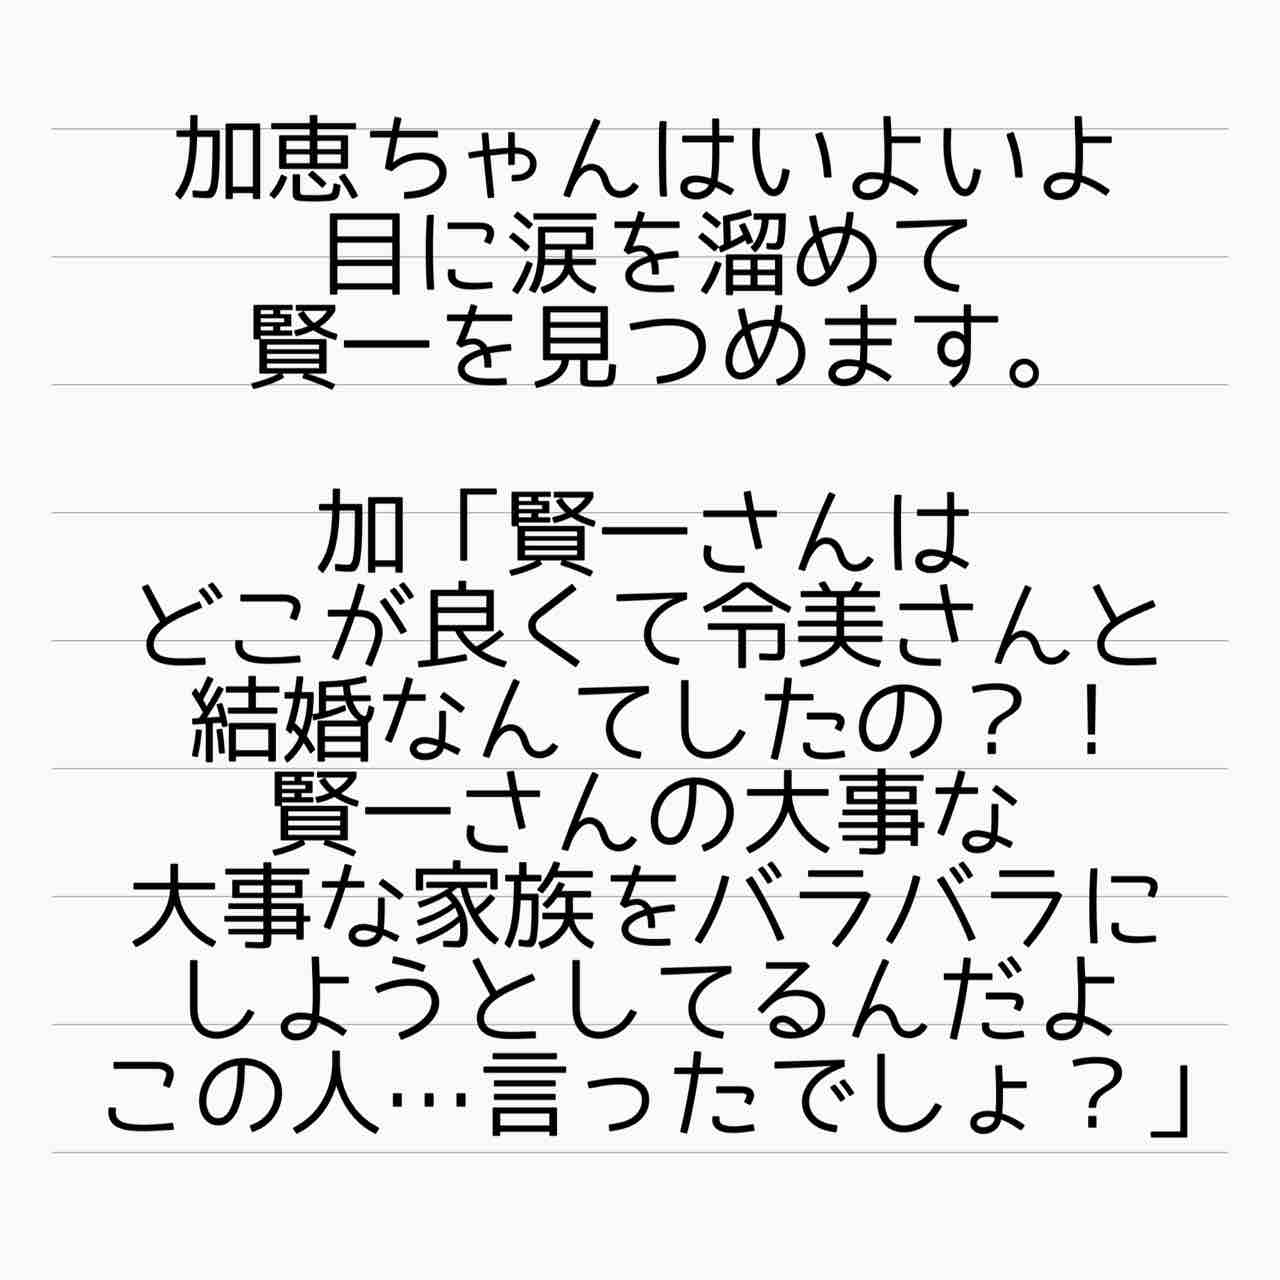 加恵ちゃんはいよいよ
目に涙を溜めて
賢一を見つめます。
加「賢一さんは
どこが良くて令美さんと
結婚なんてしたの？！
賢一さんの大事な
大事な家族をバラバラに
しようとしてるんだよ
この人…言ったでしょ？」